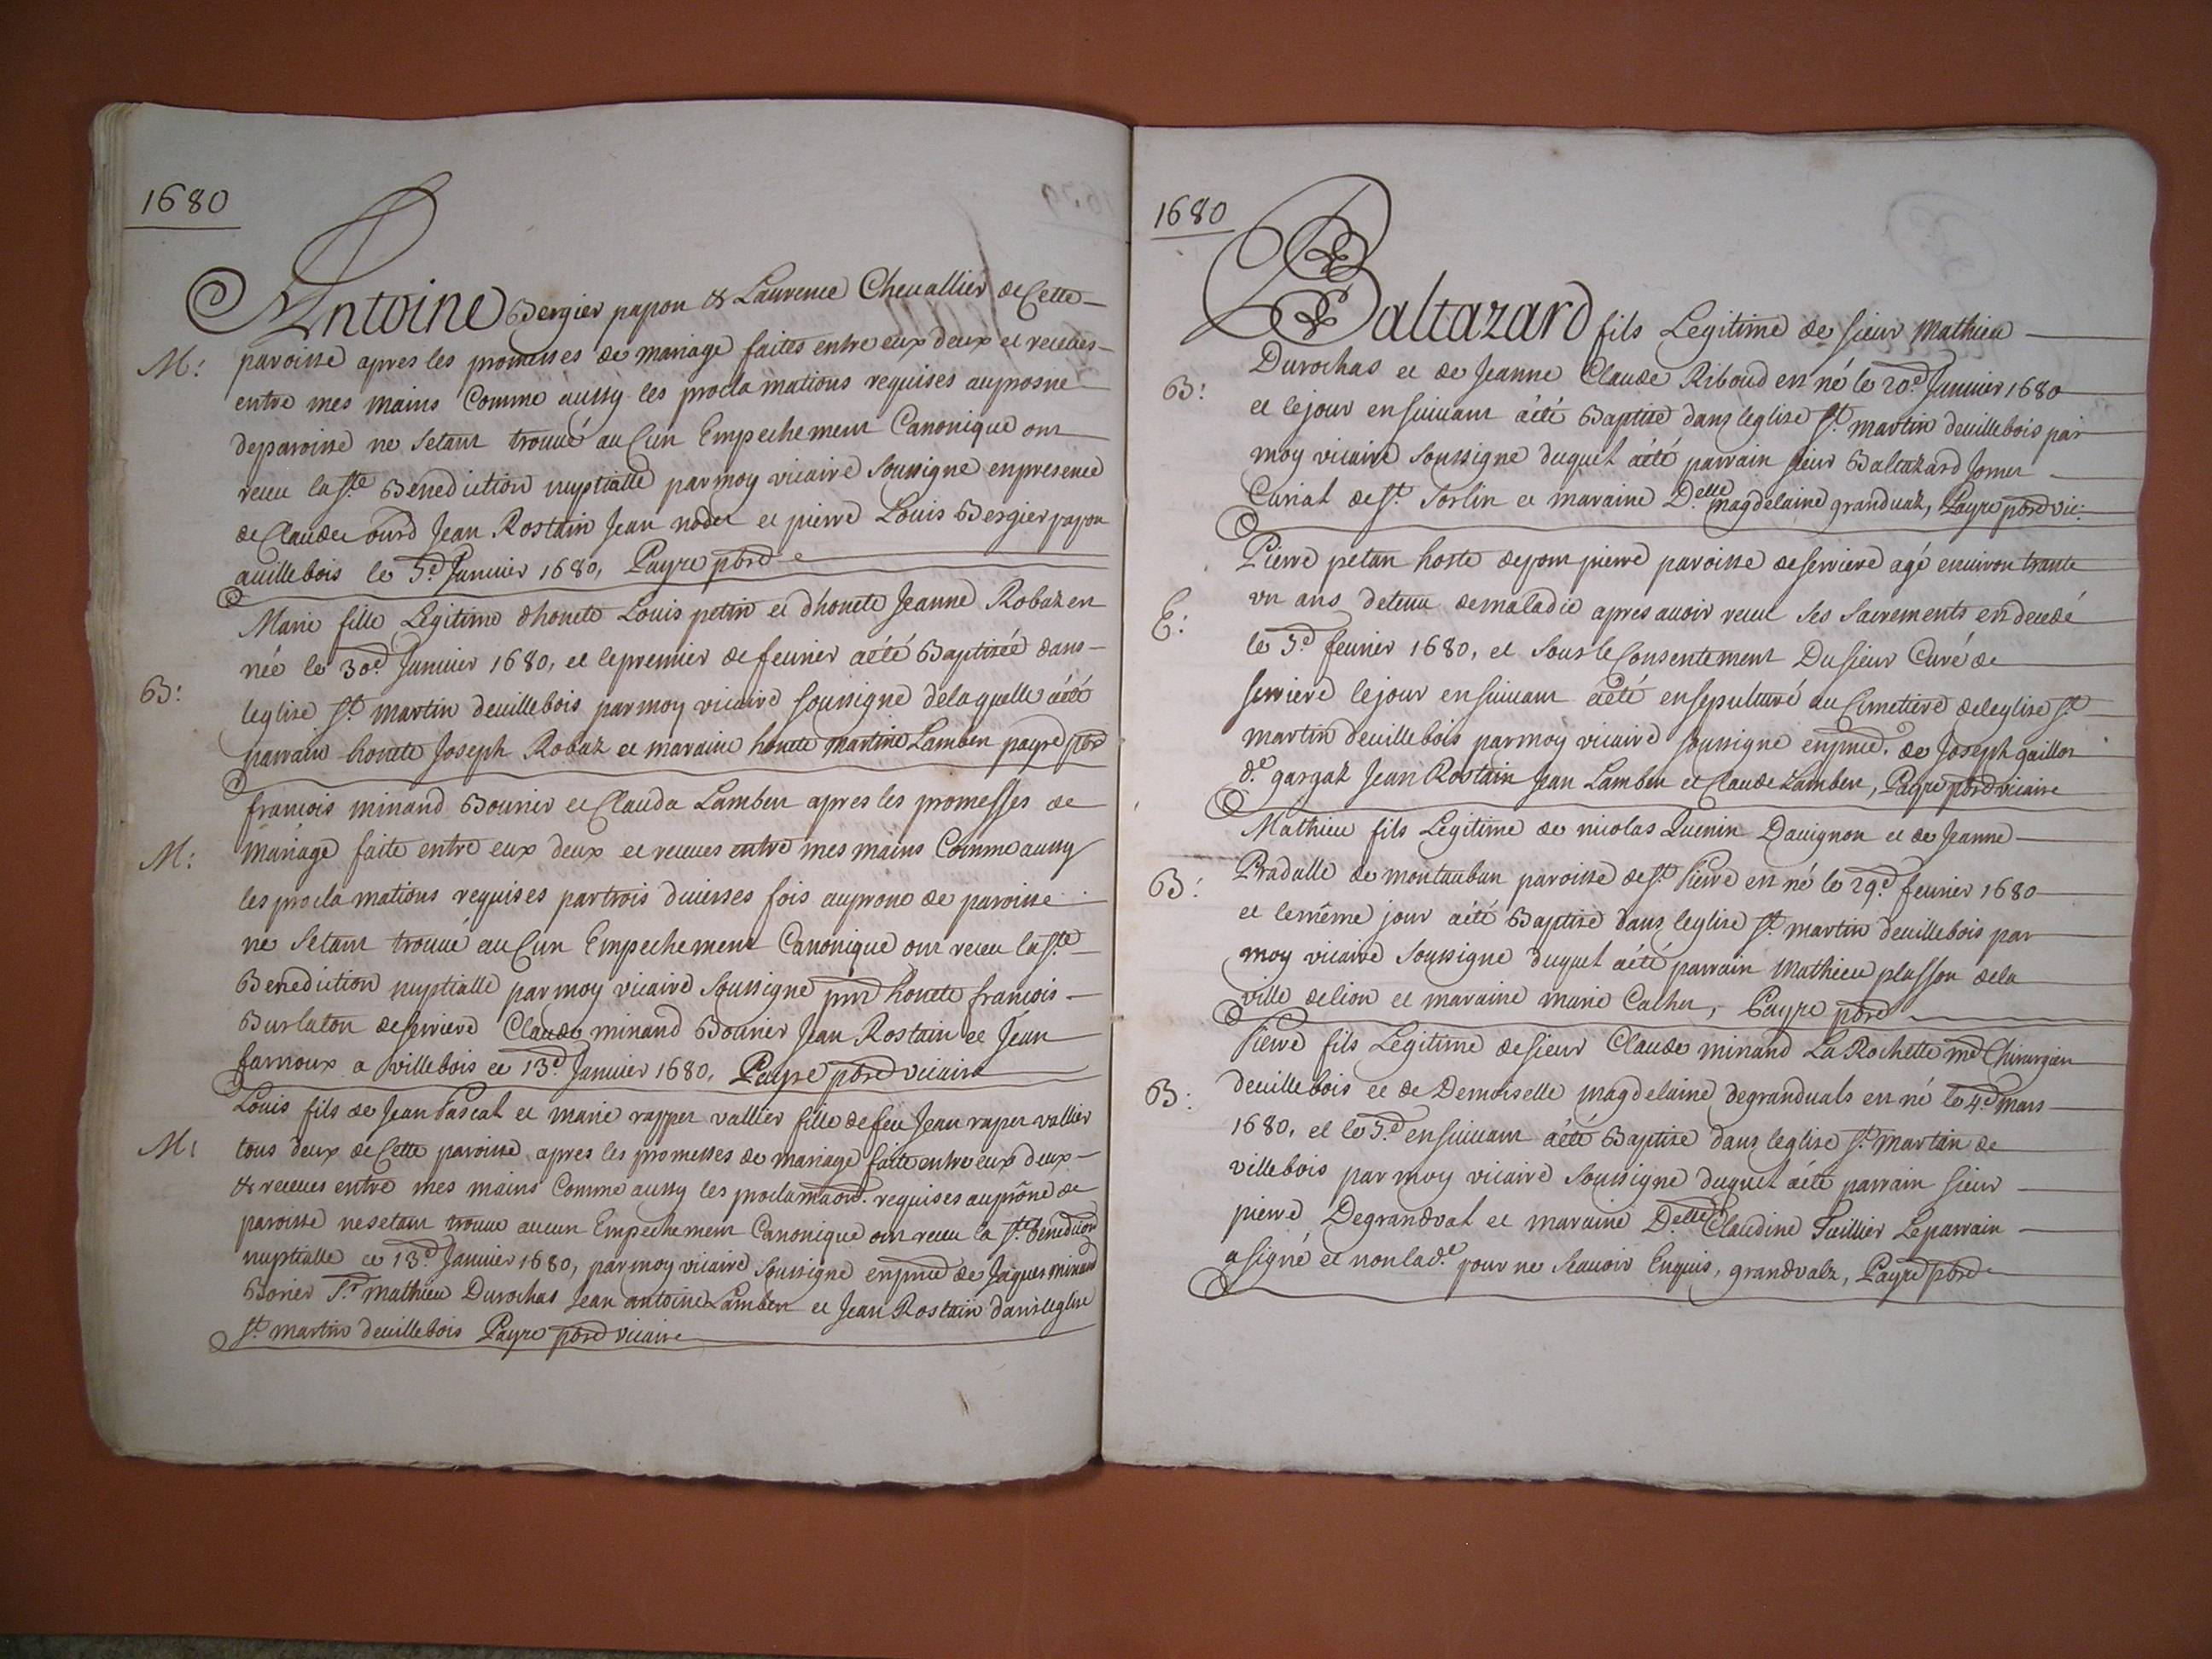 1680
Antoine Bergier papon & Laurence Cheuallier de Cette
M: paroisse apres les promesses de mariage faites entre eux deux et receues
entre mes mains Comme aussy les proclamations requises auprosne
deparoisse ne setant trouué auCun Empechement Canonique ont
receu la Ste Benediction nuptialle parmoy vicaire soussigne enpresence
de Claude Jean Rostain Jean nodet et pierre Louis Bergier papon
auillebois le 5d Januier 1680, Payre pbre
Marie fille Legitime dhonete Louis petin et dhonete Jeanne Robaz en
née le 30d Januier 1680, et lepremier de feurier aété Baptizée dans
B: leglise St martin deuillebois parmoy vicaire soussigne delaquelle aété
parrain honete Joseph Robaz et maraine honete martine Lambert payre pbre
francois minand Bourier et Clauda Lambert apres les promesses de
M: mariage faite entre eux deux et receues entre mes mains Comme aussy
les proclamations requises partrois diuerses fois auprone de paroisse
ne setant trouué auCun Empechement Canonique ont receu la Ste
Benediction nuptialle parmoy vicaire soussigne pnt honete francois
Burlaton deserriere Claude minand Bourier Jean Rostain et Jean
farnoux a villebois ce 13d Januier 1680, Payre pbre vicaire
Louis fils de Jean Pascal et marie rapper vallier fille de feu Jean raper vallier
M: tous deux de Cette paroisse apres les promesses de mariage faite entre eux deux
& receues entre mes mains Comme aussy les proclamaons. requises auprône de
paroisse nesetant trouue aucun Empechement Canonique ont receu la Ste Benediction
nuptialle ce 13d Januier 1680, parmoy vicaire soussigne enpnce de Jaques minand
Borier Sr mathieu Durochas Jean antoine Lambert et Jean Rostain dans leglise
St martin deuillebois Payre pbre vicaire
1680
Baltazard fils Legitime de sieur Mathieu
Durochas et de Jeanne Claude Riboud est né le 20d Januier 1680
B: et lejour ensuiuant aété Baptisé dans leglise St martin deuillebois par
moy vicaire soussigne duquel aété parrain sieur Baltazard
Curiat de St Sorlin et maraine Delle magdelaine granduaz, Payre pbre vic:
Pierre petan hoste depont pierre paroisse deserriere agé enuiron trante
E: vn ans detenu demaladie apres auoir receu ses sacrements est decedé
le 5d feurier 1680, et sous le Consentement Du sieur Curé de
serriere lejour ensuiuant aété ensepulturé au Cimetiere deleglise St
martin deuillebois parmoy vicaire soussigne enpnce. de Joseph gaillot
d.e gargaz Jean Rostain Jean Lambert et Claude Lambert, Payre pbre vicaire
Mathieu fils Legitime de nicolas Quenin Dauignon et de Jeanne
B: Pradalle de montauban paroisse de St Pierre est né le 29d feurier 1680
et lemême jour aété Baptisé dans leglise St martin deuillebois par
moy vicaire soussigne duquel aété parrain Mathieu plasson dela
ville delion et maraine marie Cachet, Payre pbre
Pierre fils Legitime desieur Claude minand La Rochette me Chirurgien
B: deuillebois et de Demoiselle magdelaine degranduals est né le 4d mars
1680, et le 5d ensuiuant aété Baptisé dans leglise St martin de
villebois par moy vicaire soussigne duquel aété parrain sieur
pierre Degrandval et maraine Delle Claudine Leparrain
asigné et non lad.e pour ne scauoir Enquis, grandvalz, Payre pbre